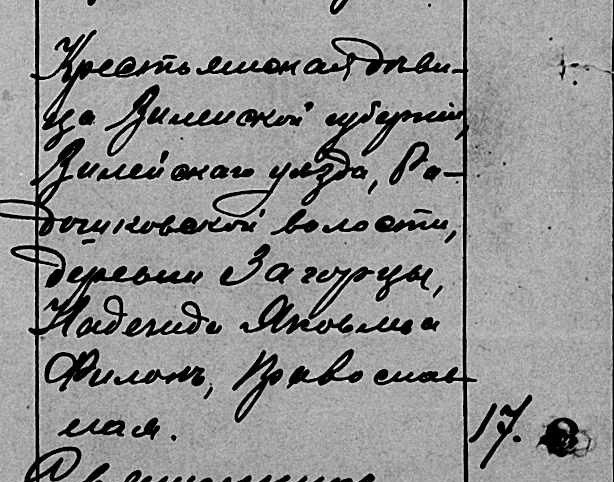 Крестьянская дѣви-
ца Виленской губерніи,
Вилейскаго уѣзда, Ра-
дошковской волости,
деревни Загорцы,
Надежда Яковлева
Филонъ, православ-
ная.
17.